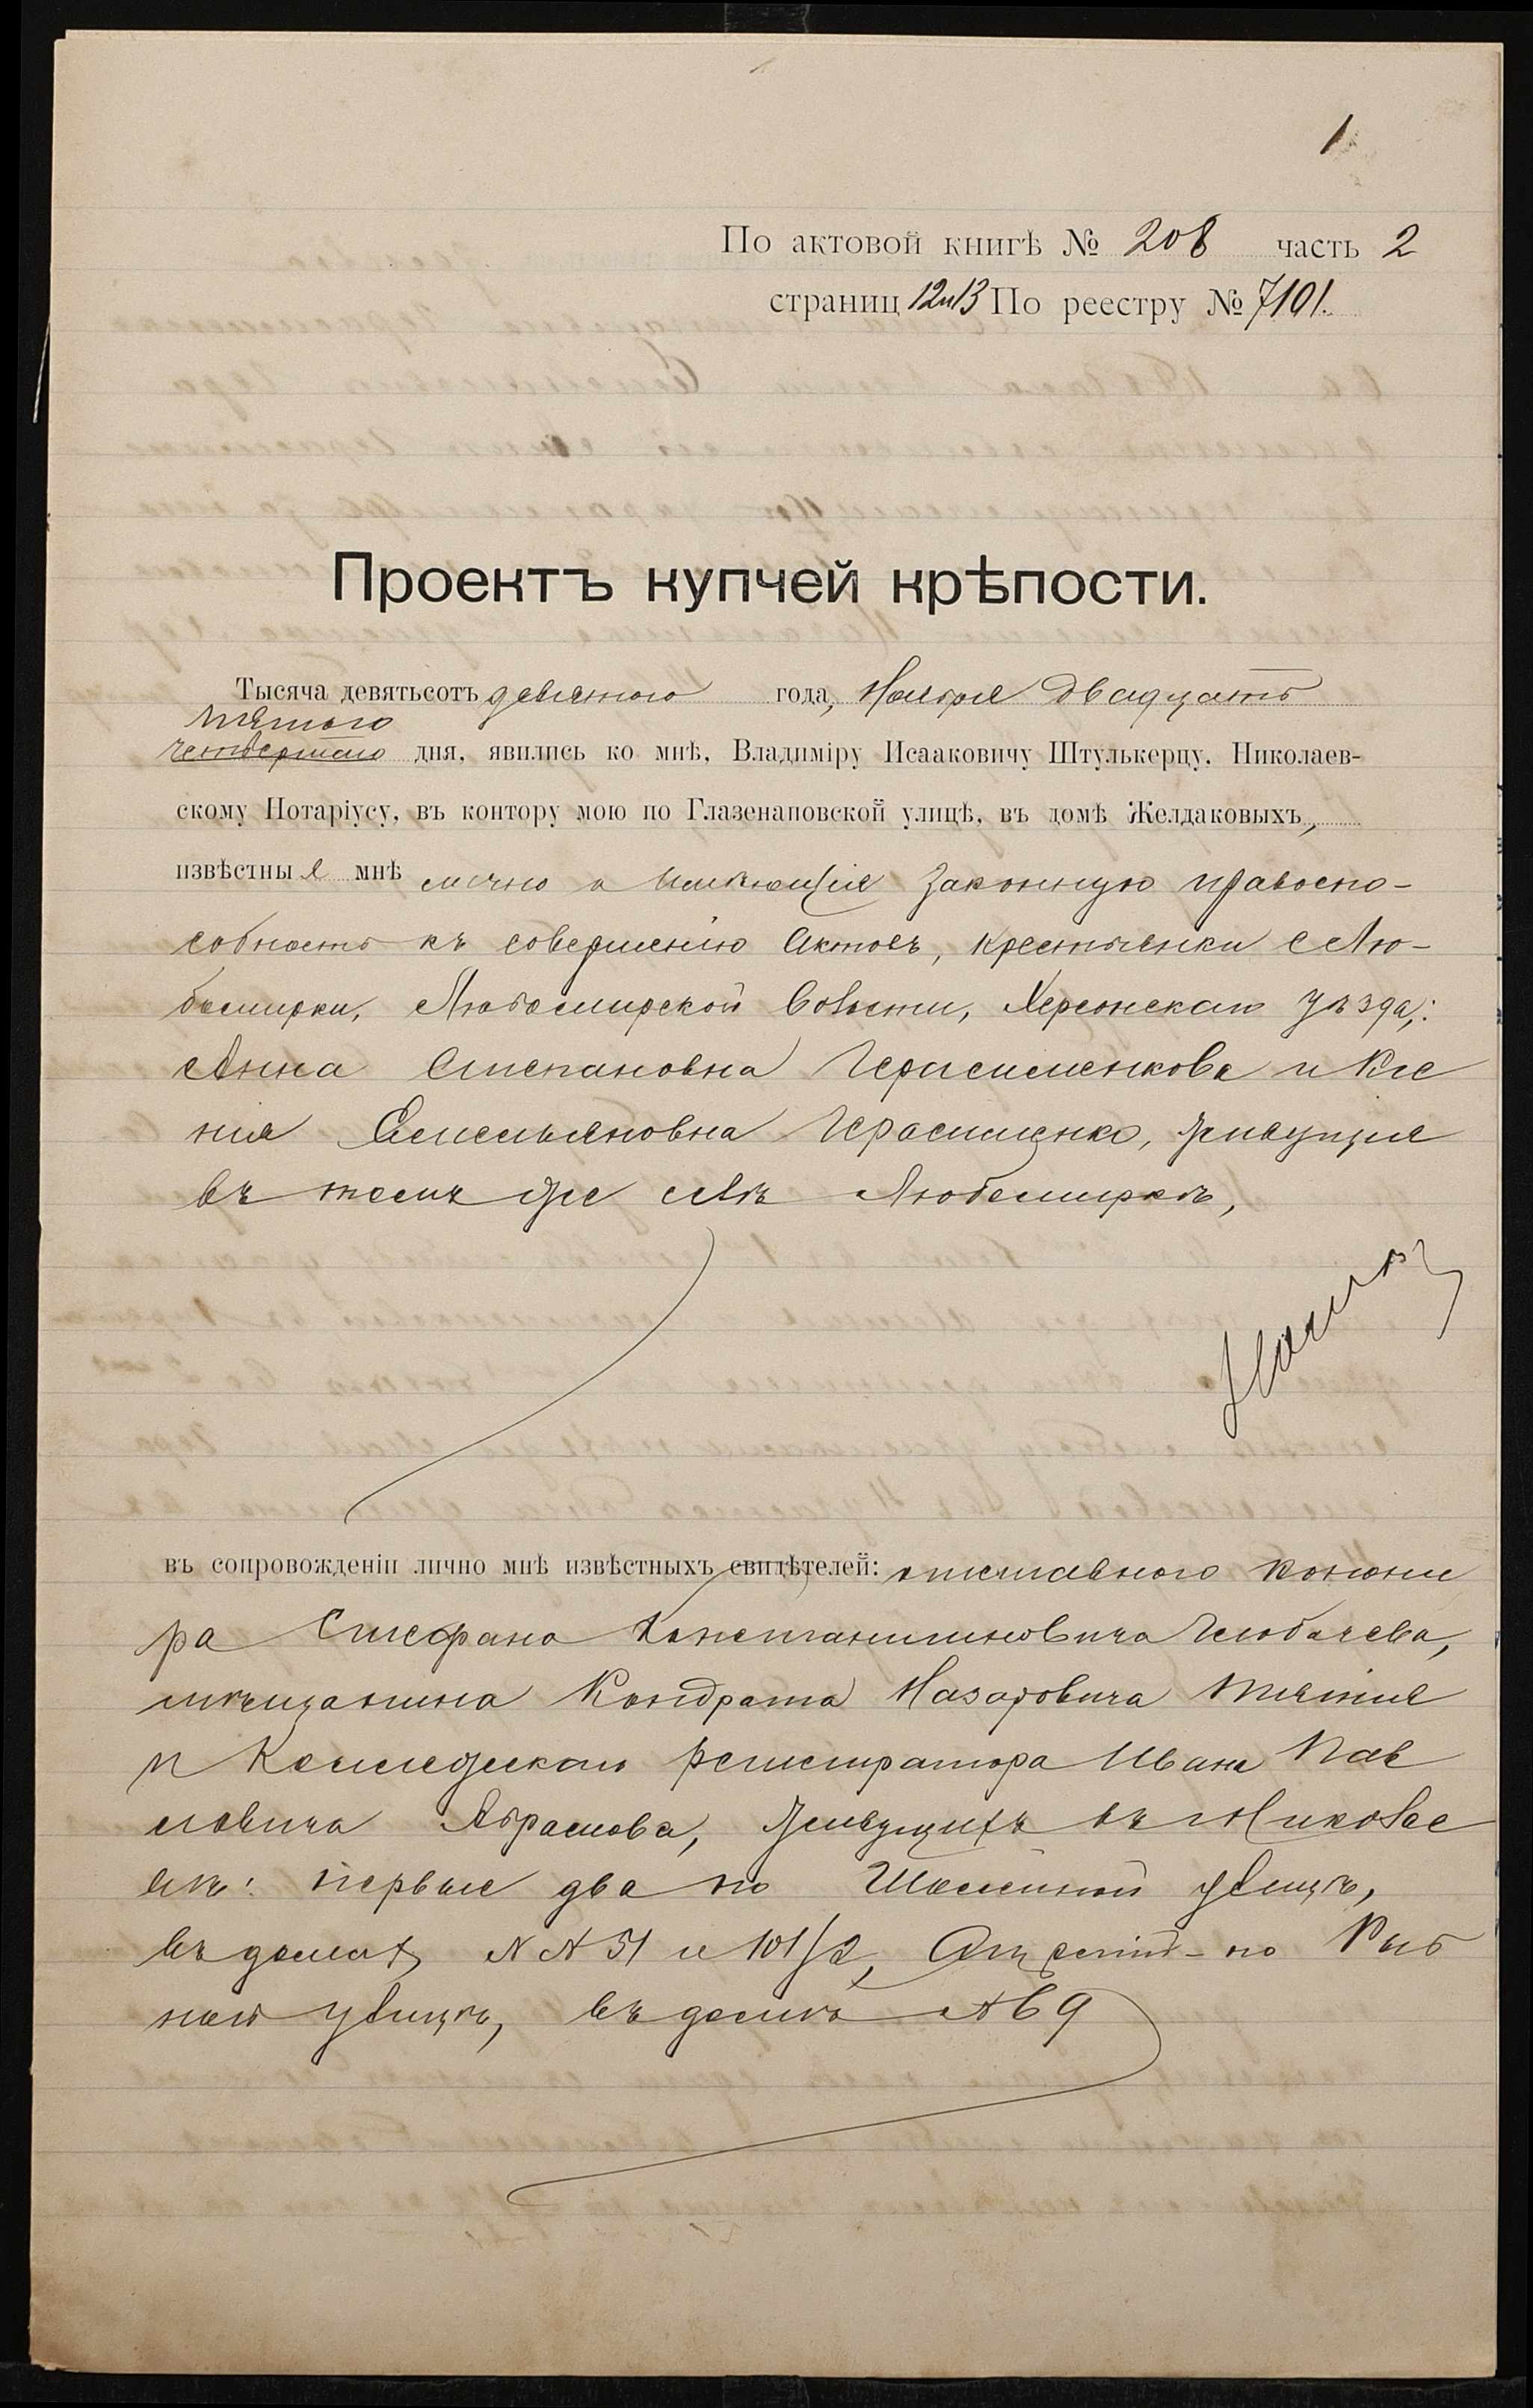 1
По актовой книгѣ № 208 часть 2
страниц 12и13 По реестру № 7101.
Проектъ купчей крѣпости.
Тысяча девятьсотъ девятого года, Ноября двадцать
пятого
четвертаго дня, явились ко мнѣ, Владиміру Исааковичу Штулькерцу, Николаев-
скому Нотаріусу, въ контору мою по Глазенаповской улицѣ, въ домѣ Желдаковыхъ,
извѣстныя мнѣ лично и имѣющія законную правоспо-
собность къ совершенію актовъ, крестьянки с Лю-
бомирки, Любомирской волости, Херсонскаго уѣзда:
Анна Степановна Герасименкова и Ксе
нія Емельяновна Герасименко, живущія
въ томъ же селѣ Любомиркѣ,
въ сопровожденіи лично мнѣ извѣстныхъ свидѣтелей: отставного
ра Стефана Константиновича
мѣщанина Кондрата Назаровича
и Коллежскаго регистратора Ивана Пав
ловича Абрамова, живущихъ въ г Никола
евѣ: первые два по улицѣ,
въ домахъ №№ 51 и 101/2, а третій - по Рыб
ной улицѣ, въ домѣ № 69